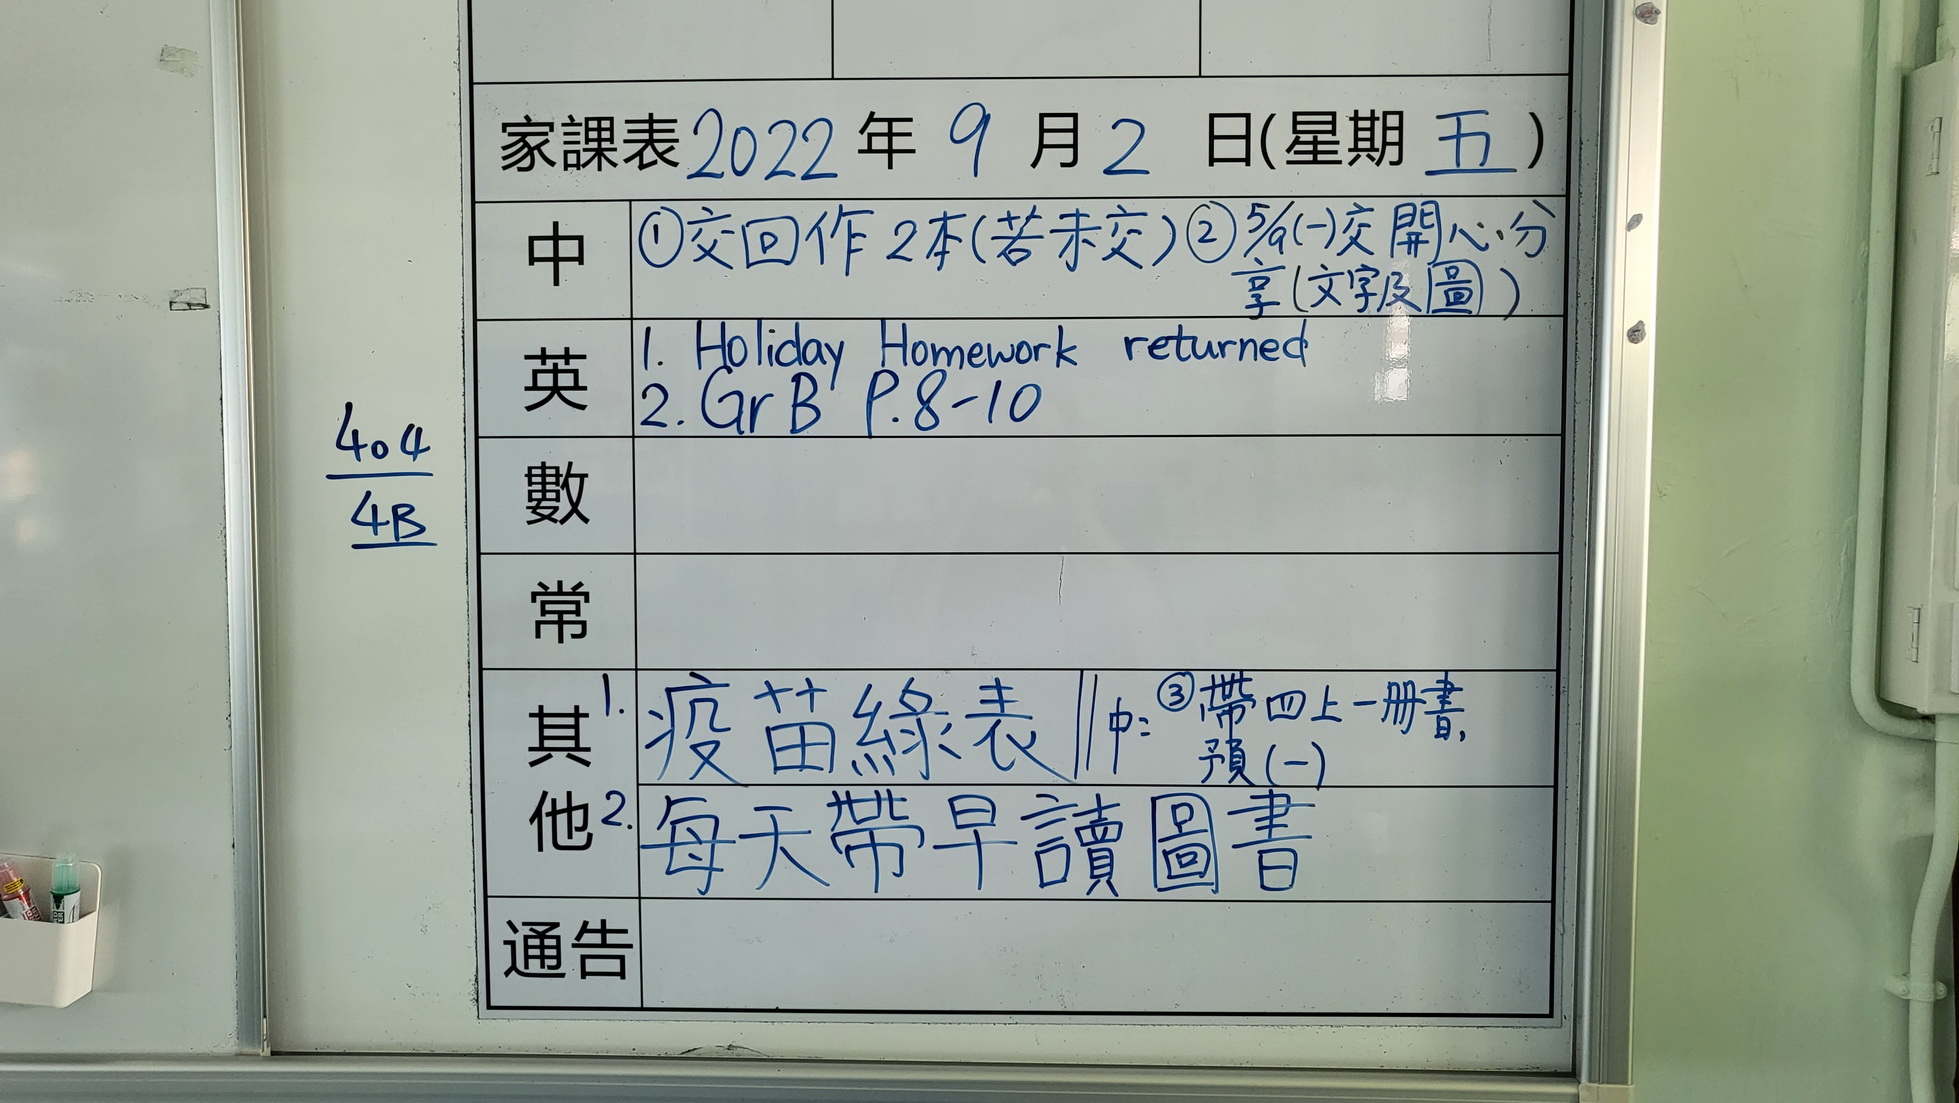 家課表 2022 年 9 月 2 日(星期 五)
中 ①交回作2本(若未交) ②5/9(一)交開心分
享(文字及圖)
英 1. Holiday Homework returned
2. Gr B P.8-10
404
4B
數
常
其他
1. 疫苗綠表 || 中: ③帶四上一冊書,
預(一)
2. 每天帶早讀圖書
通告